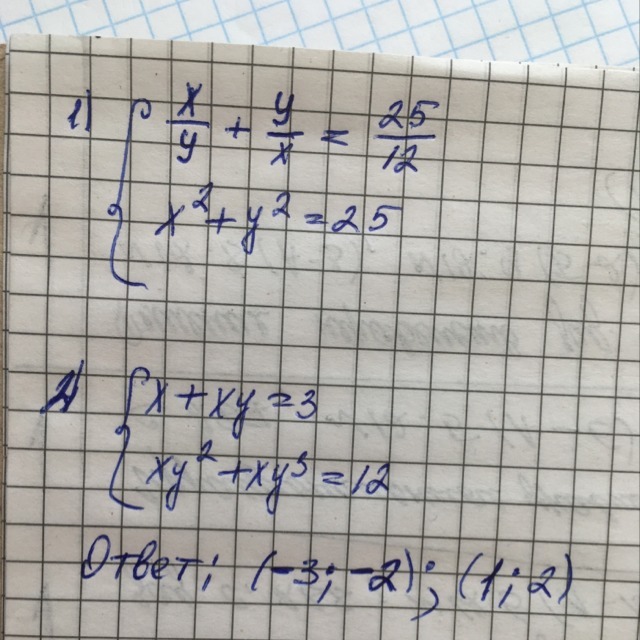 1) { x/y + y/x = 25/12
x² + y² = 25
2) { x + xy = 3
xy² + xy³ = 12
Ответ: (-3; -2); (1; 2)